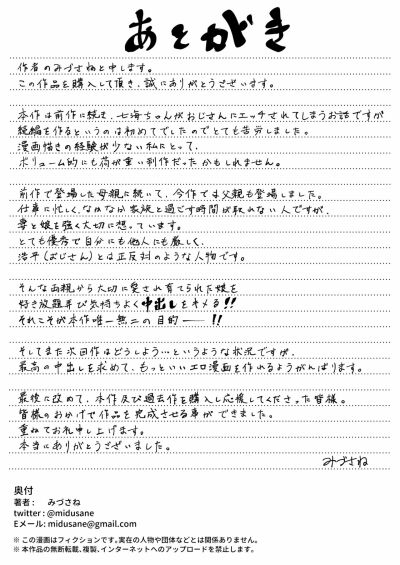 あとがき
作者のみづさねと申します。
この作品を購入して頂き、誠にありがとうございます。
本作は前作に続き、七海ちゃんがおじさんにエッチされてしまうお話ですが
続編を作るというのは初めてでしたのでとても苦労しました。
漫画描きの経験が少ない私にとって、
ボリューム的にも荷が重い制作だったかもしれません。
前作で登場した母親に続いて、今作では父親も登場しました。
仕事に忙しくなかなか家族と過ごす時間が取れない人ですが、
妻と娘を強く大切に想っています。
とても優秀で自分にも他人にも厳しく、
浩平(おじさん)とは正反対のような人物です。
そんな両親から大切に愛され育てられた娘を
好き放題弄び気持ちよく中出しをキメる!!
それこそが本作唯一無二の目的――!!
そしてまた次回作はどうしよう…というような状況ですが、
最高の中出しを求めて、もっといいエロ漫画を作れるようがんばります。
最後に改めて、本作及び過去作を購入し応援してくださった皆様。
皆様のおかげで作品を完成させる事ができました。
重ねてお礼申し上げます。
本当にありがとうございました。
みづさね
奥付
著者: みづさね
twitter : @midusane
Eメール: midusane@gmail.com
※ この漫画はフィクションです。実在の人物や団体などとは関係ありません。
※ 本作品の無断転載、複製、インターネットへのアップロードを禁止します。